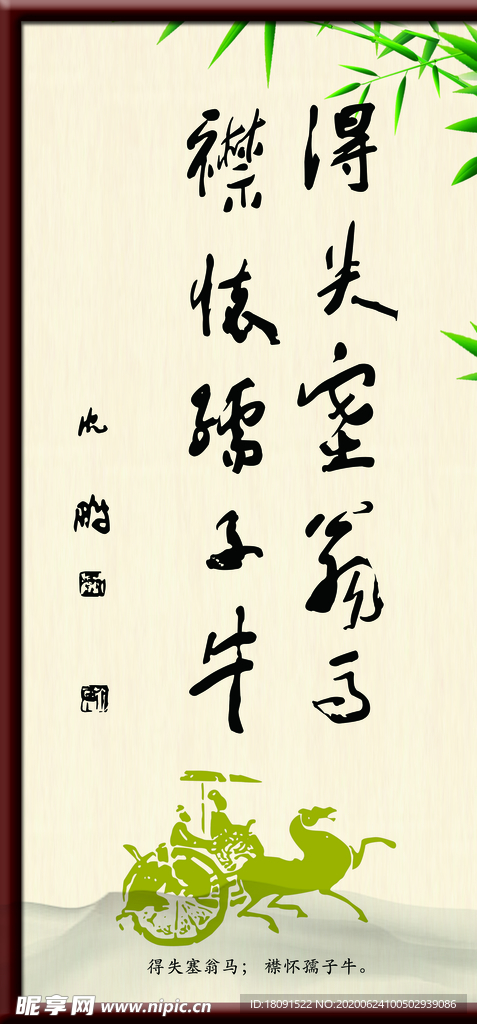 得失塞翁马
襟怀孺子牛
沈鹏
得失塞翁马；襟怀孺子牛。
昵享网 www.nipic.cn
ID:18091522 NO:20200624100502939086